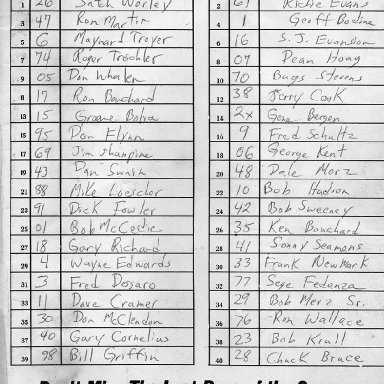 1 26 Satch Worley 2 61 Richie Evans
3 47 Ron Martin 4 1 Geoff Bodine
5 6 Maynard Troyer 6 16 S.J. Evonsion
7 74 Roger Treichler 8 07 Dean Hoag
9 05 Don Whalen 10 70 Bugs Stevens
11 17 Ron Bouchard 12 38 Jerry Cook
13 15 Greame Bolia 14 2x Gene Bergen
15 95 Don Flynn 16 9 Fred Schultz
17 69 Jim Shampine 18 06 George Kent
19 43 Dan Swain 20 48 Dale Merz
21 88 Mike Loescher 22 10 Bob Hudson
23 91 Dick Fowler 24 42 Bob Sweeney
25 01 Bob McCedie 26 35 Ken Bouchard
27 18 Gary Richard 28 41 Sonny Seamons
29 4 Wayne Edwards 30 33 Frank Newmark
31 3 Fred Desaro 32 77 Sege Fedanza
33 11 Dave Cramer 34 29 Bob Merz Sr.
35 30 Don McClendon 36 76 Ron Wallace
37 40 Gary Cornelius 38 23 Bob Krull
39 98 Bill Griffin 40 28 Chuck Bruce